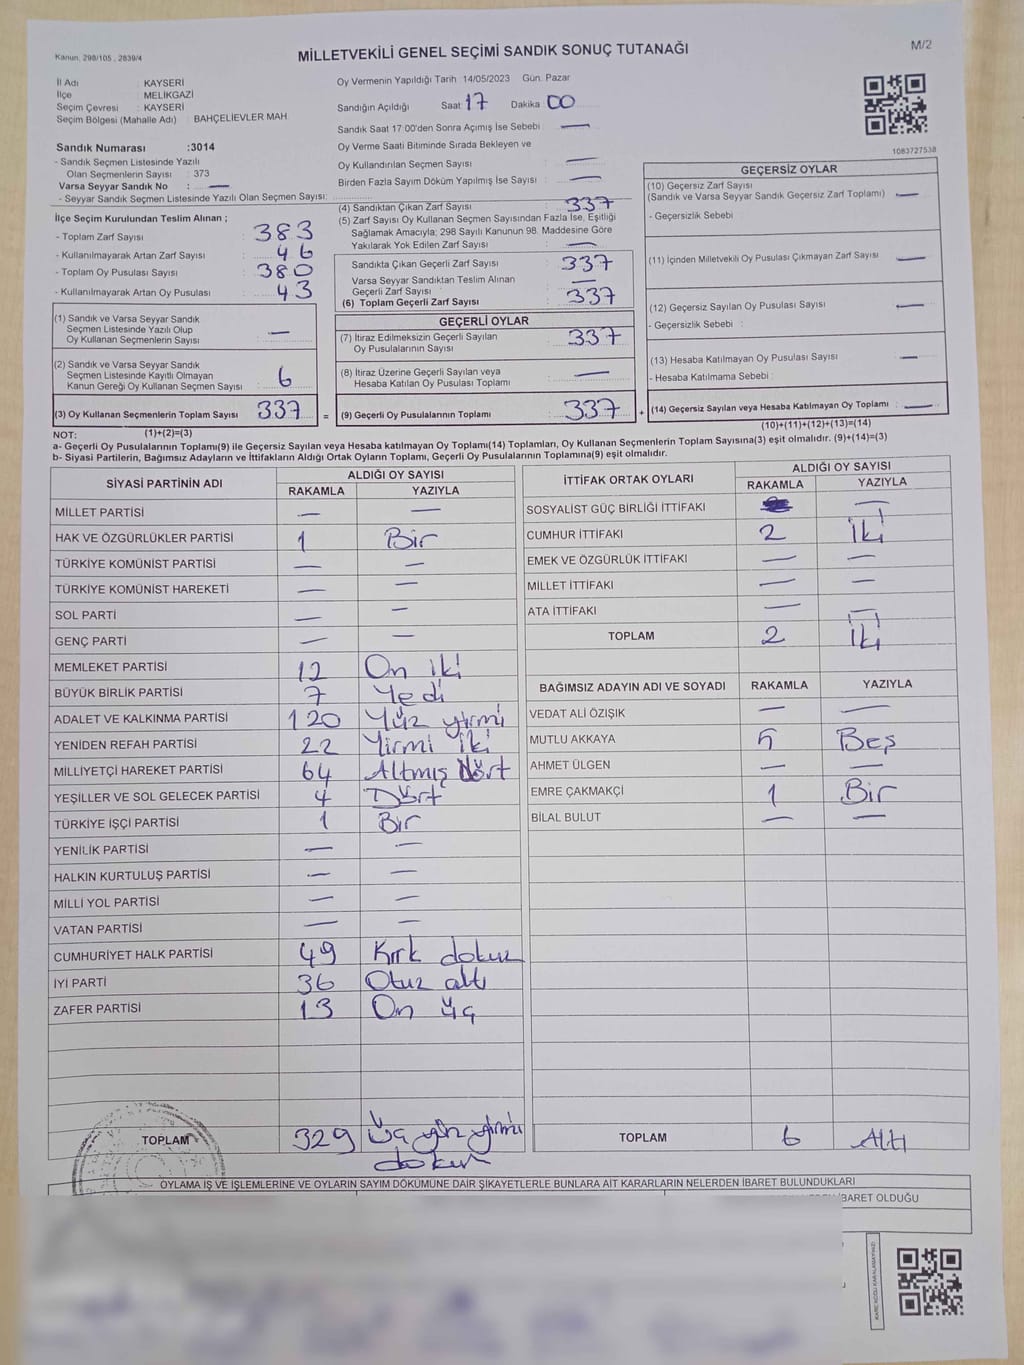 Kanun. 298/105 , 2839/4
MİLLETVEKİLİ GENEL SEÇİMİ SANDIK SONUÇ TUTANAĞI
M/2
İl Adı : KAYSERİ
İlçe : MELİKGAZİ
Seçim Çevresi : KAYSERİ
Seçim Bölgesi (Mahalle Adı) : BAHÇELİEVLER MAH
Oy Vermenin Yapıldığı Tarih 14/05/2023 Gün. Pazar
Sandığın Açıldığı Saat 17 Dakika 00
Sandık Saat 17:00'den Sonra Açımış İse Sebebi : —
Oy Verme Saati Bitiminde Sırada Bekleyen ve
Oy Kullandırılan Seçmen Sayısı : —
Birden Fazla Sayım Döküm Yapılmış İse Sayısı : —
1083727538
Sandık Numarası :3014
- Sandık Seçmen Listesinde Yazılı
Olan Seçmenlerin Sayısı : 373
Varsa Seyyar Sandık No : —
- Seyyar Sandık Seçmen Listesinde Yazılı Olan Seçmen Sayısı:
İlçe Seçim Kurulundan Teslim Alınan ;
- Toplam Zarf Sayısı : 383
- Kullanılmayarak Artan Zarf Sayısı : 46
- Toplam Oy Pusulası Sayısı : 380
- Kullanılmayarak Artan Oy Pusulası : 43
(1) Sandık ve Varsa Seyyar Sandık
Seçmen Listesinde Yazılı Olup
Oy Kullanan Seçmenlerin Sayısı : —
(2) Sandık ve Varsa Seyyar Sandık
Seçmen Listesinde Kayıtlı Olmayan
Kanun Gereği Oy Kullanan Seçmen Sayısı : 6
(3) Oy Kullanan Seçmenlerin Toplam Sayısı 337 =
(1)+(2)=(3)
(4) Sandıktan Çıkan Zarf Sayısı : 337
(5) Zarf Sayısı Oy Kullanan Seçmen Sayısından Fazla İse, Eşitliği
Sağlamak Amacıyla; 298 Sayılı Kanunun 98. Maddesine Göre
Yakılarak Yok Edilen Zarf Sayısı : —
Sandıkta Çıkan Geçerli Zarf Sayısı : 337
Varsa Seyyar Sandıktan Teslim Alınan
Geçerli Zarf Sayısı : —
(6) Toplam Geçerli Zarf Sayısı : 337
GEÇERLİ OYLAR
(7) İtiraz Edilmeksizin Geçerli Sayılan
Oy Pusulalarının Sayısı : 337
(8) İtiraz Üzerine Geçerli Sayılan veya
Hesaba Katılan Oy Pusulası Toplamı : —
(9) Geçerli Oy Pusulalarının Toplamı : 337 +
GEÇERSİZ OYLAR
(10) Geçersiz Zarf Sayısı
(Sandık ve Varsa Seyyar Sandık Geçersiz Zarf Toplamı) : —
- Geçersizlik Sebebi :
(11) İçinden Milletvekili Oy Pusulası Çıkmayan Zarf Sayısı : —
(12) Geçersiz Sayılan Oy Pusulası Sayısı : —
- Geçersizlik Sebebi :
(13) Hesaba Katılmayan Oy Pusulası Sayısı : —
- Hesaba Katılmama Sebebi :
(14) Geçersiz Sayılan veya Hesaba Katılmayan Oy Toplamı : —
(10)+(11)+(12)+(13)=(14)
NOT:
a- Geçerli Oy Pusulalarının Toplamı(9) ile Geçersiz Sayılan veya Hesaba katılmayan Oy Toplamı(14) Toplamları, Oy Kullanan Seçmenlerin Toplam Sayısına(3) eşit olmalıdır. (9)+(14)=(3)
b- Siyasi Partilerin, Bağımsız Adayların ve İttifakların Aldığı Ortak Oyların Toplamı, Geçerli Oy Pusulalarının Toplamına(9) eşit olmalıdır.
SİYASİ PARTİNİN ADI ALDIĞI OY SAYISI
RAKAMLA YAZIYLA
MİLLET PARTİSİ — —
HAK VE ÖZGÜRLÜKLER PARTİSİ 1 Bir
TÜRKİYE KOMÜNİST PARTİSİ — —
TÜRKİYE KOMÜNİST HAREKETİ — —
SOL PARTİ — —
GENÇ PARTİ — —
MEMLEKET PARTİSİ 12 On iki
BÜYÜK BİRLİK PARTİSİ 7 Yedi
ADALET VE KALKINMA PARTİSİ 120 Yüz yirmi
YENİDEN REFAH PARTİSİ 22 Yirmi iki
MİLLİYETÇİ HAREKET PARTİSİ 64 Altmış dört
YEŞİLLER VE SOL GELECEK PARTİSİ 4 Dört
TÜRKİYE İŞÇİ PARTİSİ 1 Bir
YENİLİK PARTİSİ — —
HALKIN KURTULUŞ PARTİSİ — —
MİLLİ YOL PARTİSİ — —
VATAN PARTİSİ — —
CUMHURİYET HALK PARTİSİ 49 Kırk dokuz
İYİ PARTİ 36 Otuz altı
ZAFER PARTİSİ 13 On üç
TOPLAM 329 Üç yüz yirmi
dokuz
İTTİFAK ORTAK OYLARI ALDIĞI OY SAYISI
RAKAMLA YAZIYLA
SOSYALİST GÜÇ BİRLİĞİ İTTİFAKI —
CUMHUR İTTİFAKI 2 İki
EMEK VE ÖZGÜRLÜK İTTİFAKI — —
MİLLET İTTİFAKI — —
ATA İTTİFAKI — —
TOPLAM 2 İki
BAĞIMSIZ ADAYIN ADI VE SOYADI RAKAMLA YAZIYLA
VEDAT ALİ ÖZIŞIK — —
MUTLU AKKAYA 5 Beş
AHMET ÜLGEN — —
EMRE ÇAKMAKÇİ 1 Bir
BİLAL BULUT — —
TOPLAM 6 Altı
OYLAMA İŞ VE İŞLEMLERİNE VE OYLARIN SAYIM DÖKÜMÜNE DAİR ŞİKAYETLERLE BUNLARA AİT KARARLARIN NELERDEN İBARET BULUNDUKLARI
İBARET OLDUĞU